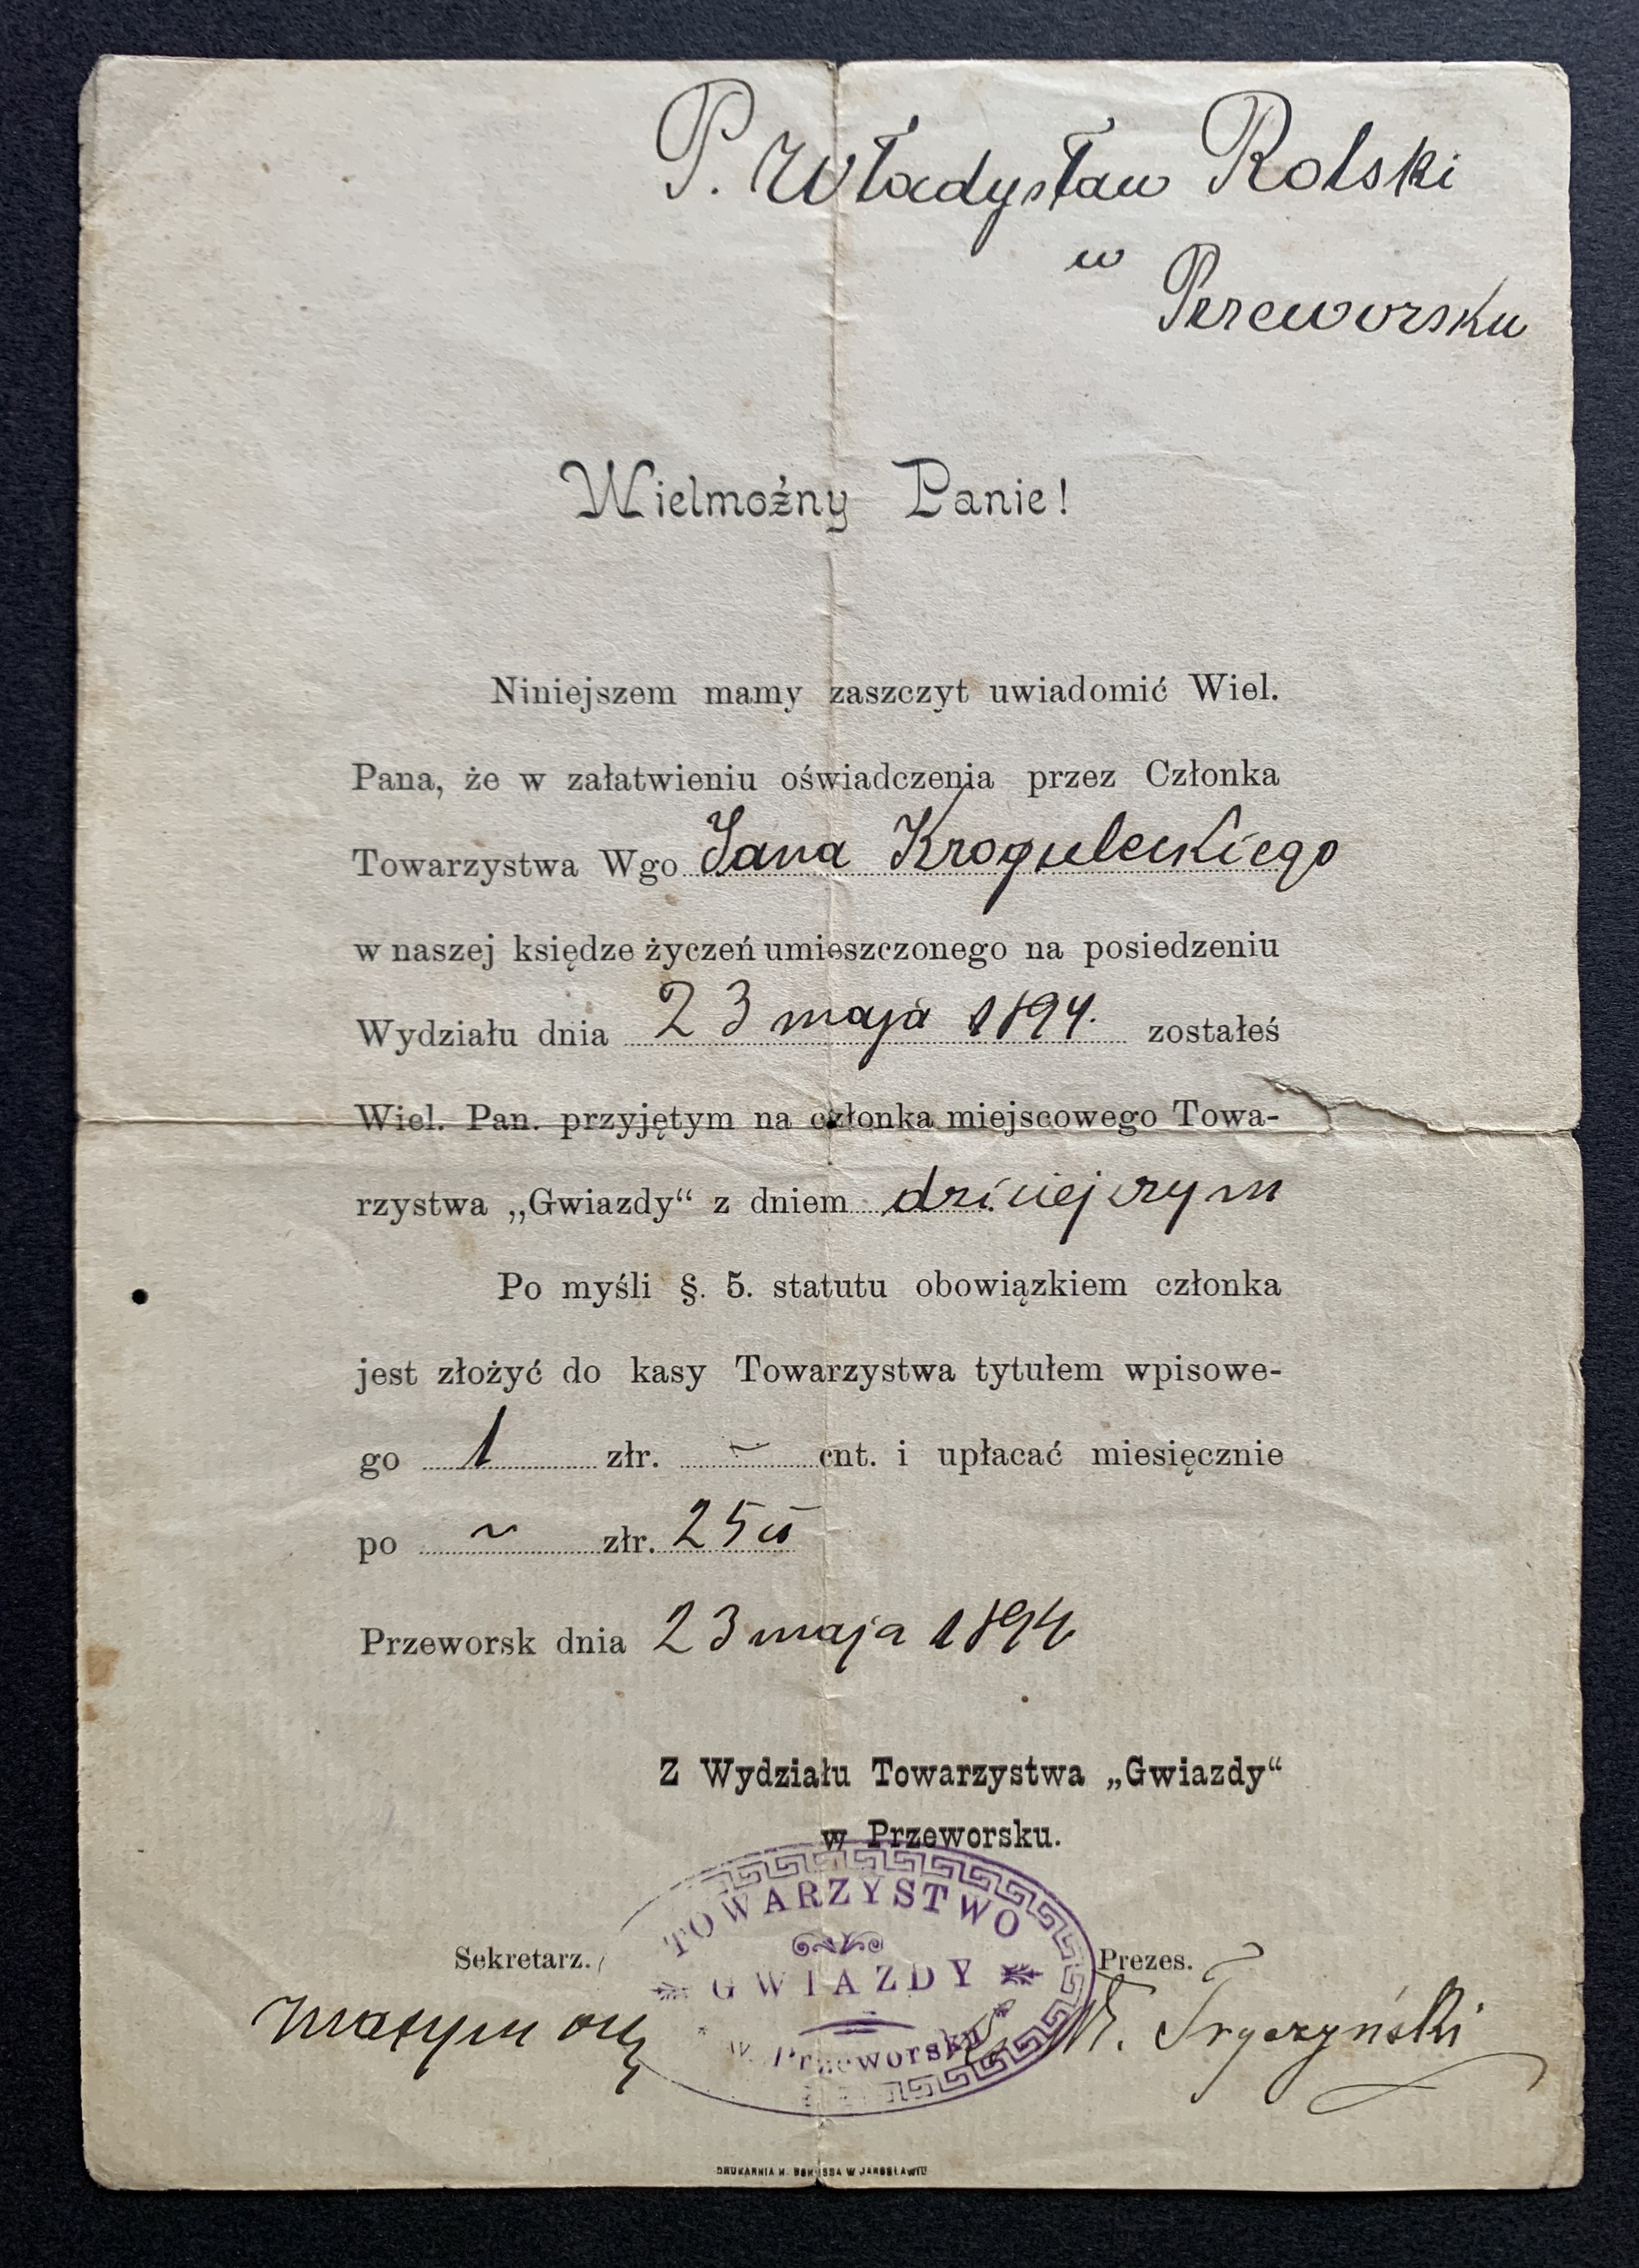 P. Władysław Rolski
w
Przeworsku
Wielmożny Panie!
Niniejszem mamy zaszczyt uwiadomić Wiel.
Pana, że w załatwieniu oświadczenia przez Członka
Towarzystwa Wgo Jana Kroguleckiego
w naszej księdze życzeń umieszczonego na posiedzeniu
Wydziału dnia 23 maja 1894. zostałeś
Wiel. Pan. przyjętym na członka miejscowego Towa-
rzystwa „Gwiazdy“ z dniem dzisiejszym
Po myśli §. 5. statutu obowiązkiem członka
jest złożyć do kasy Towarzystwa tytułem wpisowe-
go 1 złr. – cnt. i upłacać miesięcznie
po ~ złr. 25
Przeworsk dnia 23 maja 1894
Z Wydziału Towarzystwa „Gwiazdy“
w Przeworsku.
TOWARZYSTWO
GWIAZDY
w Przeworsku
Sekretarz.
Prezes.
DRUKARNIA W JAROSŁAWIU